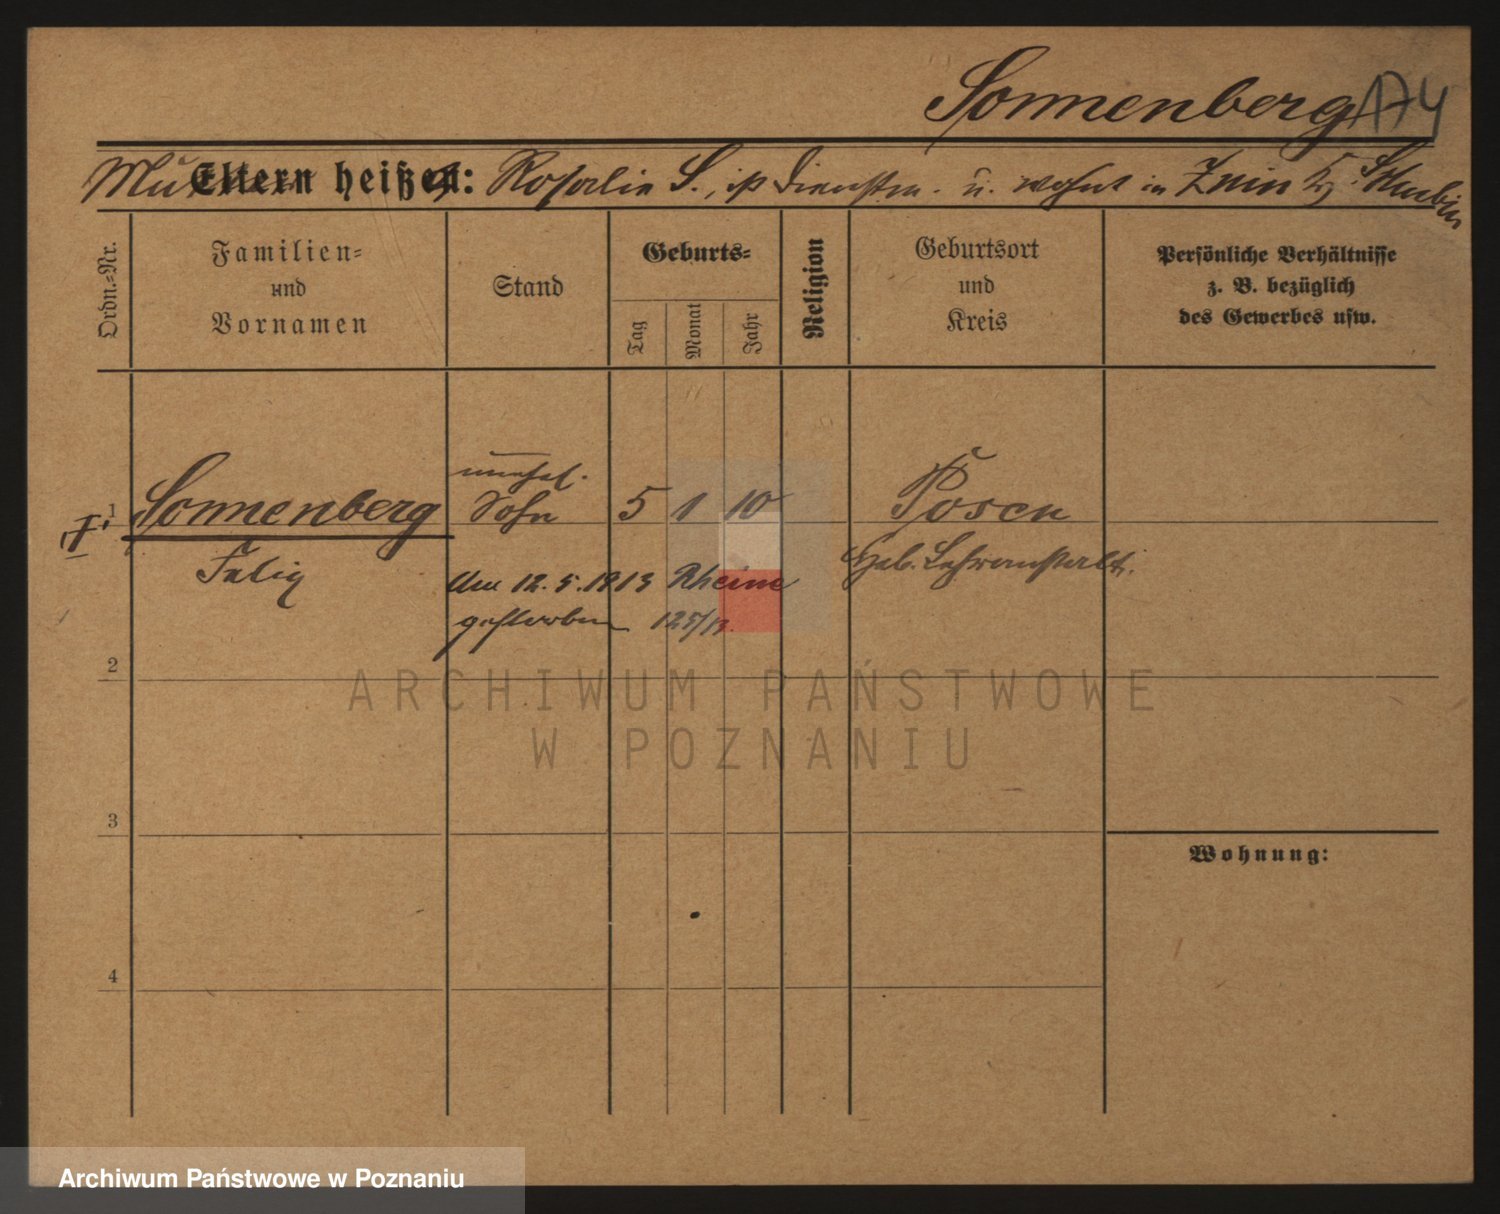 Sonnenberg 174
Eltern heißen: Rosalie S., ist Dienstm. u. wohnt in Znin Kr. Schubin
Ordn.-Nr.
Familien-
und
Vornamen
Stand
Geburts-
Tag
Monat
Jahr
Religion
Geburtsort
und
Kreis
Persönliche Verhältnisse
z. B. bezüglich
des Gewerbes usw.
1
Sonnenberg
Felix
unehel.
Sohn
5 1 10
Posen
Heb. Lehranstalt.
Am 12.5.1913 Rheine
gestorben 125/13.
2
ARCHIWUM PAŃSTWOWE
W POZNANIU
3
Wohnung:
4
Archiwum Państwowe w Poznaniu